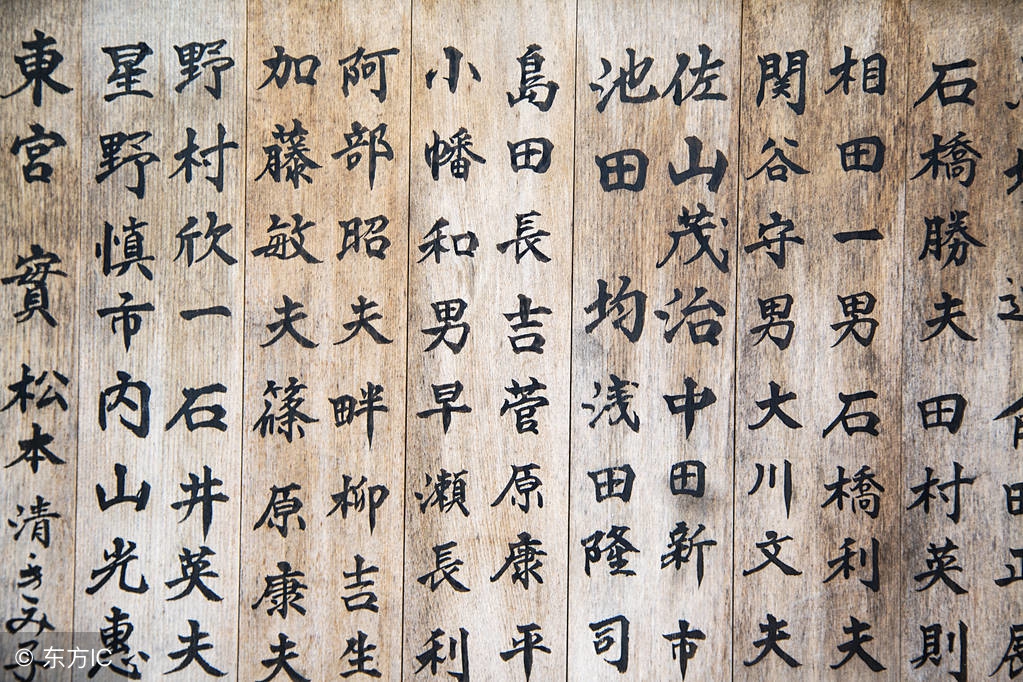 石橋勝夫 田村英則
相田一男 石橋利夫
関谷守男 大川文夫
佐山茂治 中田新市
池田 均 浅田隆司
島田長吉 菅原康平
小幡和男 早瀬長利
阿部昭夫 畔柳吉生
加藤敏夫 篠原康夫
野村欣一 石井英夫
星野慎市 内山光惠
東宮 實 松本清 きみ子
© 东方IC